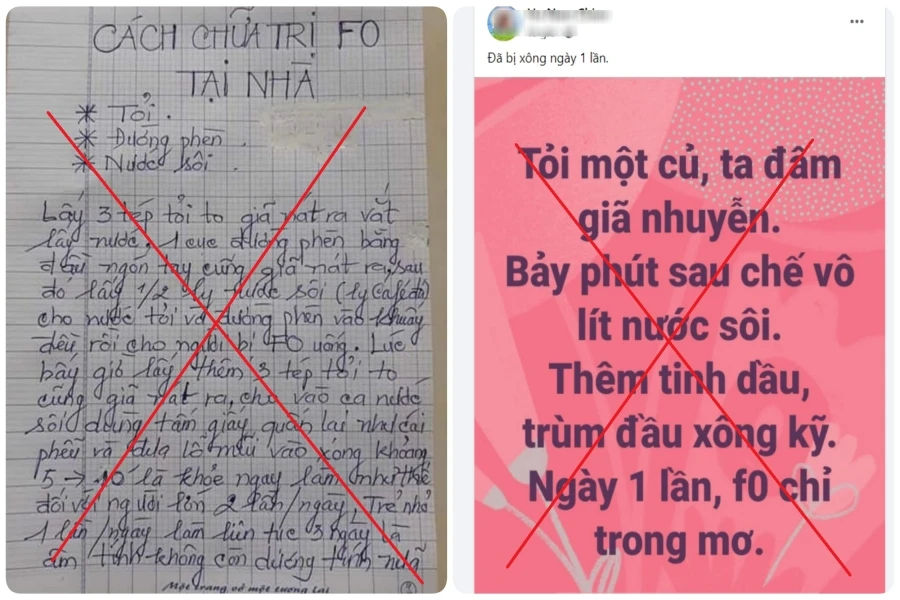 CÁCH CHỮA TRỊ FO
TẠI NHÀ
* Tỏi.
* Đường phèn.
* Nước sôi
Lấy 3 tép tỏi to giã nát ra vắt
lấy nước, 1 cục đường phèn bằng
đầu ngón tay cũng giã nát ra, sau
đó lấy 1/2 ly nước sôi (ly café đá)
cho nước tỏi và đường phèn vào khuấy
đều rồi cho người bị FO uống. Lục
bấy giờ lấy thêm 3 tép tỏi to
cũng giã nát ra, cho vào ca nước
sôi dùng tấm giấy quấn lại như cái
phễu và đưa lỗ mũi vào xông khoảng
5 → 10' là khỏe ngay làm như thế
đối với người lớn 2 lần/ngày, Trẻ nhỏ
1 lần/ngày làm liên tục 3 ngày là
âm tính không còn dương tính nữa
Một trang vở một tương lai
Đã bị xông ngày 1 lần.
Tỏi một củ, ta đâm
giã nhuyễn.
Bảy phút sau chế vô
lít nước sôi.
Thêm tinh dầu,
trùm đầu xông kỹ.
Ngày 1 lần, f0 chỉ
trong mơ.